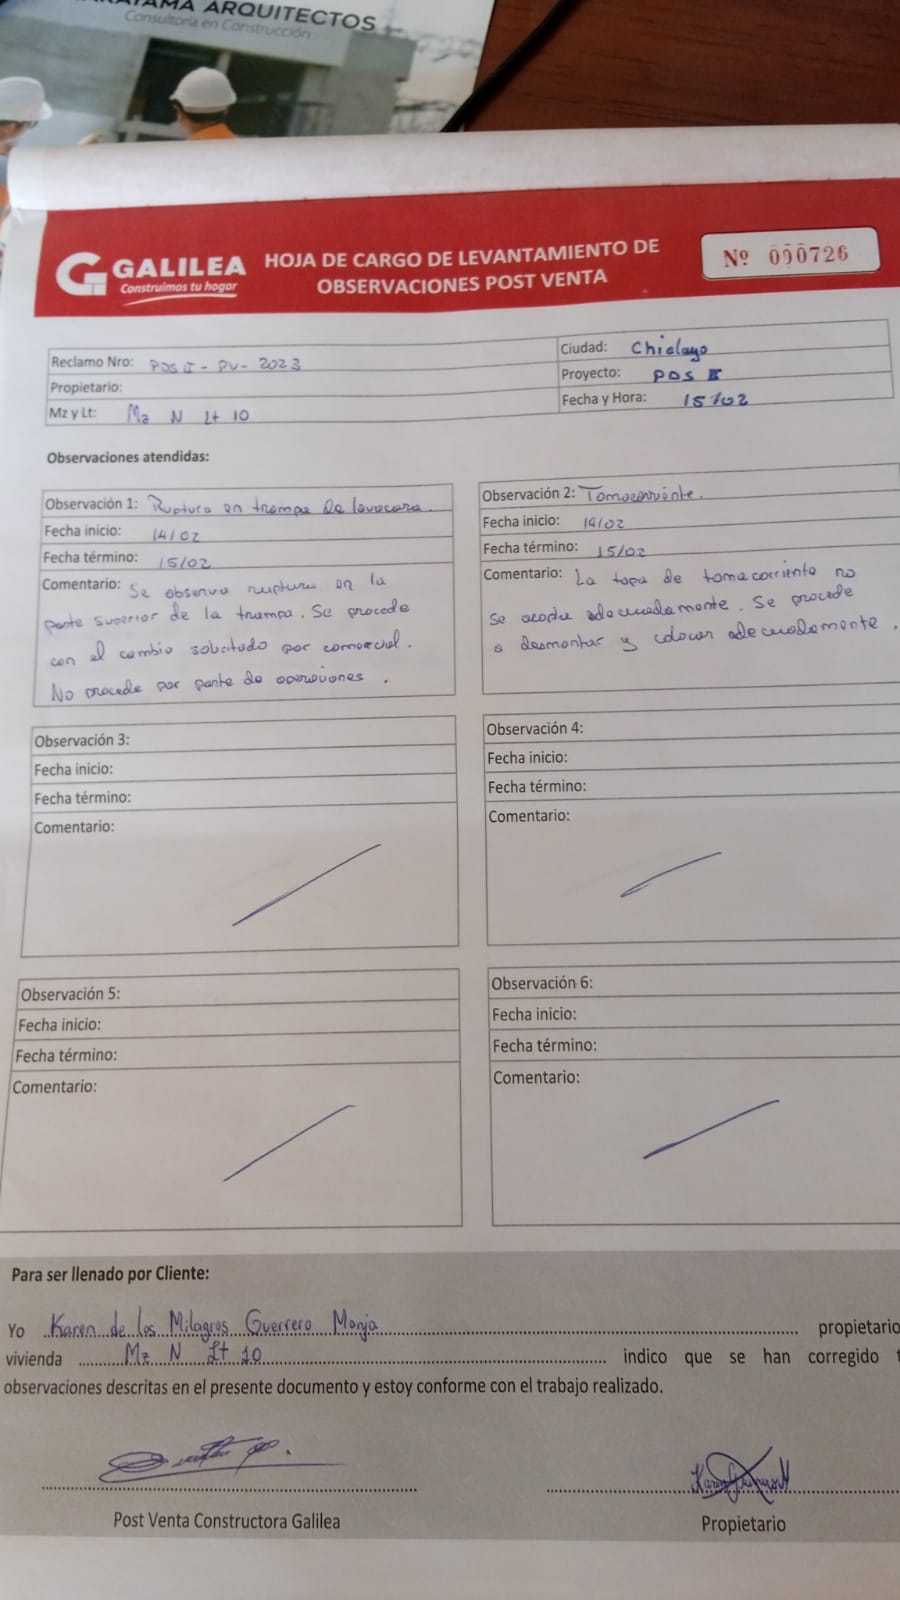 ARQUITECTOS
Consultoría en Construcción
GALILEA
Construimos tu hogar
HOJA DE CARGO DE LEVANTAMIENTO DE
OBSERVACIONES POST VENTA
Nº 000726
Reclamo Nro: PDS II - PV - 2023
Ciudad: Chiclayo
Propietario:
Proyecto: PDS II
Mz y Lt: Mz N Lt 10
Fecha y Hora: 15/02
Observaciones atendidas:
Observación 1: Ruptura en trampa de lavacara.
Fecha inicio: 14/02
Fecha término: 15/02
Comentario: Se observa ruptura en la
parte superior de la trampa. Se procede
con el cambio solicitudo por comercial.
No procede por parte de operaciones.
Observación 2: Tomacorriente.
Fecha inicio: 14/02
Fecha término: 15/02
Comentario: La tapa de tomacorriente no
se acopla adecuadamente. Se procede
a desmontar y colocar adecuadamente.
Observación 3:
Fecha inicio:
Fecha término:
Comentario:
Observación 4:
Fecha inicio:
Fecha término:
Comentario:
Observación 5:
Fecha inicio:
Fecha término:
Comentario:
Observación 6:
Fecha inicio:
Fecha término:
Comentario:
Para ser llenado por Cliente:
Yo Karen de los Milagros Guerrero Monja propietario
vivienda Mz N Lt 10 indico que se han corregido
observaciones descritas en el presente documento y estoy conforme con el trabajo realizado.
Post Venta Constructora Galilea
Propietario